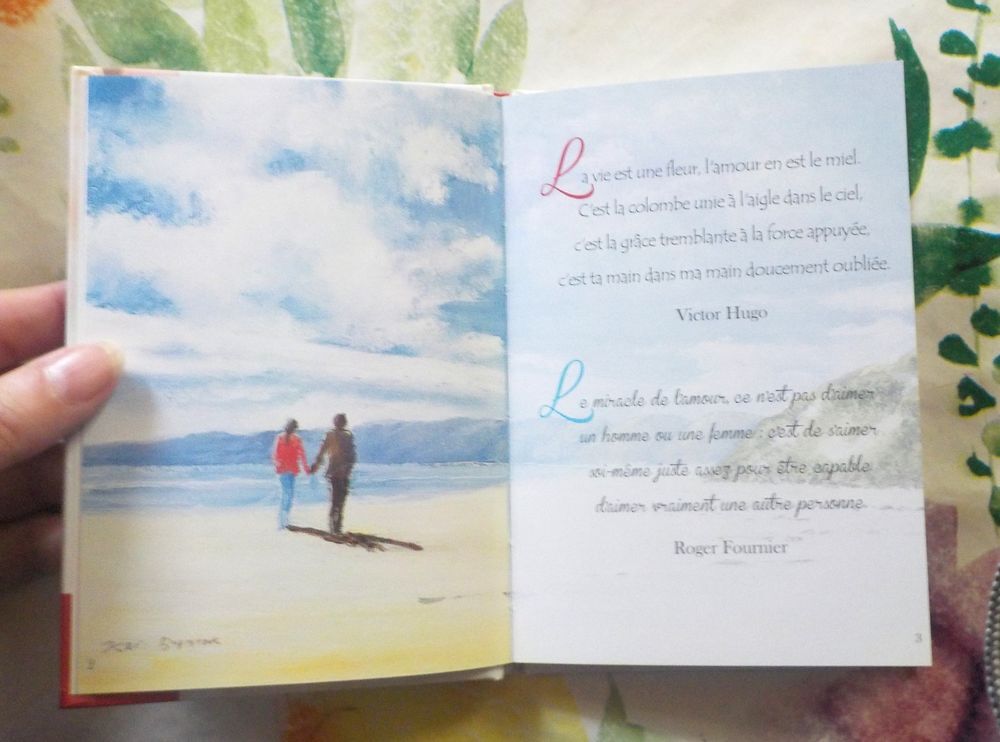 La vie est une fleur, l'amour en est le miel.
C'est la colombe unie à l'aigle dans le ciel,
c'est la grâce tremblante à la force appuyée,
c'est ta main dans ma main doucement oubliée.
Victor Hugo
Le miracle de l'amour, ce n'est pas d'aimer
un homme ou une femme : c'est de s'aimer
soi-même juste assez pour être capable
d'aimer vraiment une autre personne.
Roger Fournier
3